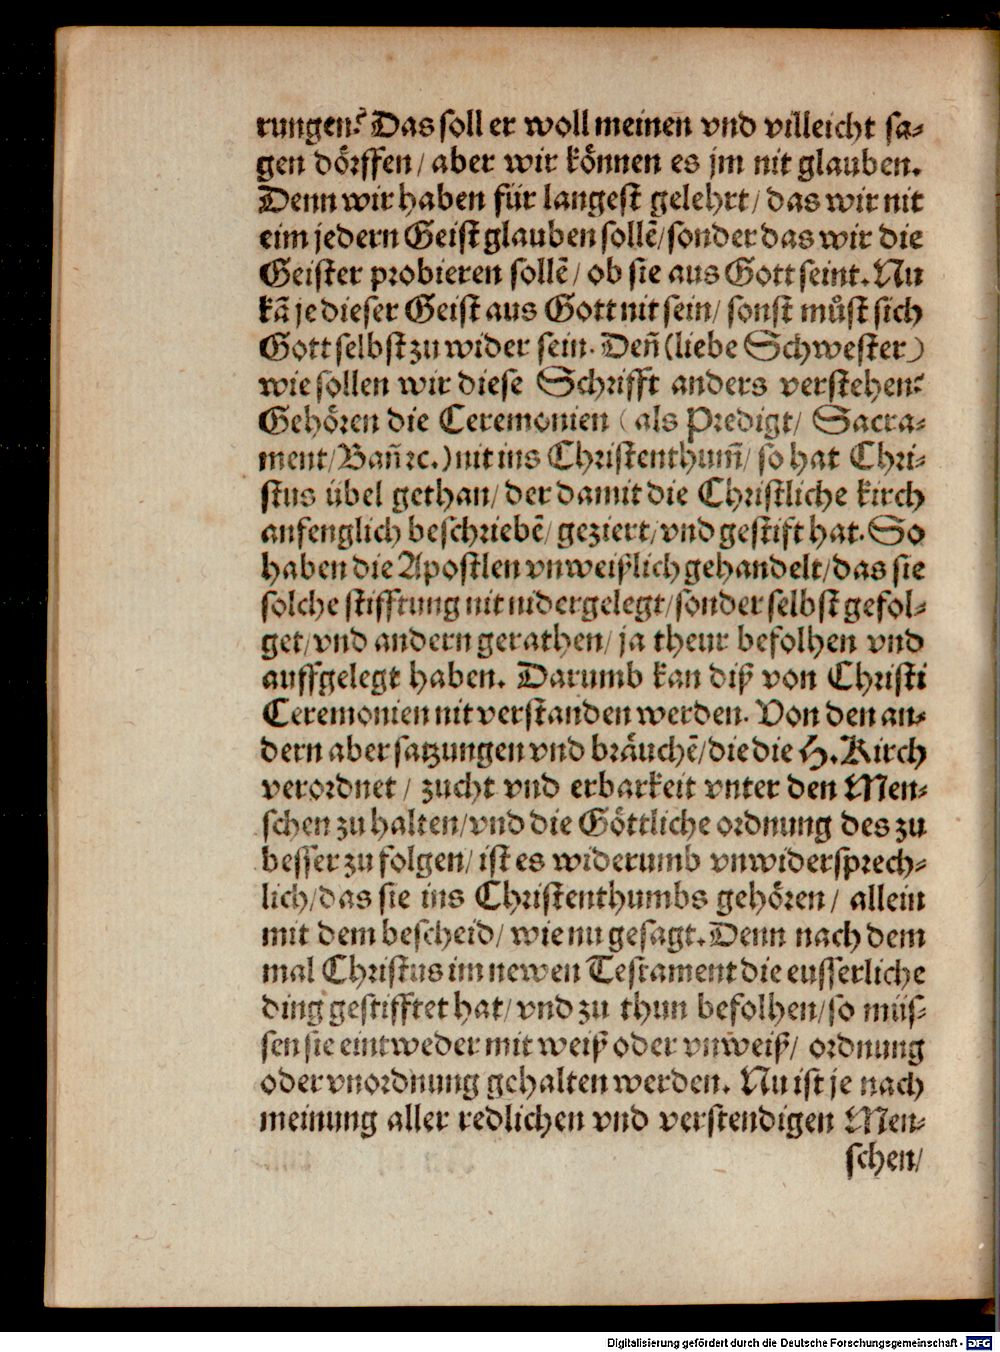 rungen? Das soll er woll meinen vnd villeicht sa-
gen dörffen/ aber wir können es jm nit glauben.
Denn wir haben für langest gelehrt/ das wir nit
eim jedern Geist glauben sollẽ/ sonder das wir die
Geister probieren sollẽ/ ob sie aus Gott seint. Nu
kã je dieser Geist aus Gott nit sein/ sonst můst sich
Gott selbst zu wider sein. Deñ (liebe Schwester)
wie sollen wir diese Schrifft anders verstehen?
Gehören die Ceremonien (als Predigt/ Sacra-
ment/ Bañ ꝛc.) nit ins Christenthum̃/ so hat Chri-
stus übel gethan/ der damit die Christliche kirch
anfenglich beschriebẽ/ geziert/ vnd gestift hat. So
haben die Apostlen vnweißlich gehandelt/ das sie
solche stifftung nit nidergelegt/ sonder selbst gefol-
get/ vnd andern gerathen/ ja theur befolhen vnd
auffgelegt haben. Darumb kan diß von Christi
Ceremonien nit verstanden werden. Von den an-
dern aber satzungen vnd bräuchẽ/ die die H. Kirch
verordnet/ zucht vnd erbarkeit vnter den Men-
schen zu halten/ vnd die Göttliche ordnung des zu
besser zu folgen/ ist es widerumb vnwidersprech-
lich/ das sie ins Christenthumbs gehören/ allein
mit dem bescheid/ wie nu gesagt. Denn nach dem
mal Christus im newen Testament die eusserliche
ding gestifftet hat/ vnd zu thun befolhen/ so müs-
sen sie eintweder mit weiß oder vnweiß/ ordnung
oder vnordnung gehalten werden. Nu ist je nach
meinung aller redlichen vnd verstendigen Men-
schen/
Digitalisierung gefördert durch die Deutsche Forschungsgemeinschaft - DFG